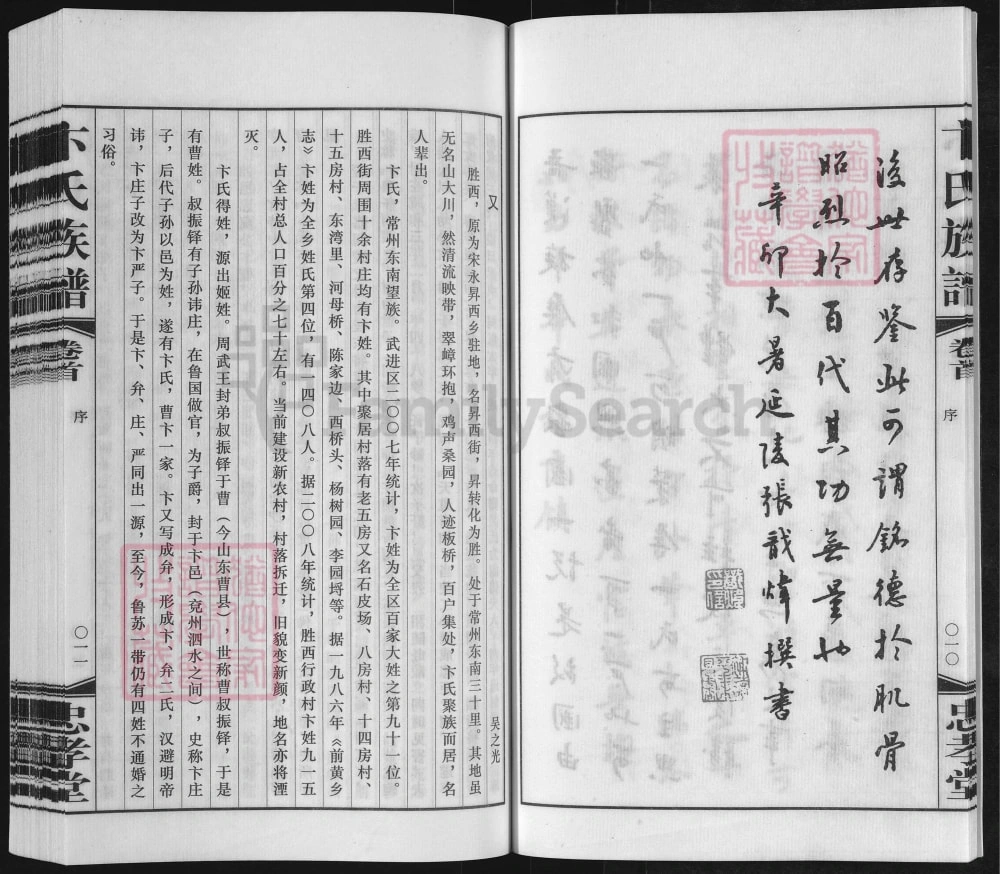 卞氏族譜
卷首
序
〇一〇
忠孝堂
後世存鑒此可謂銘德於肌骨
昭烈於百代其功無量也
辛卯大暑延陵張戩煒撰書
又
吴之光
胜西，原为宋永昇西乡驻地，名昇西街，昇转化为胜。处于常州东南三十里。其地虽
无名山大川，然清流映带，翠嶂环抱，鸡声桑园，人迹板桥，百户集处，卞氏聚族而居，名
人辈出。
卞氏，常州东南望族。武进区二〇〇七年统计，卞姓为全区百家大姓之第九十一位。
胜西街周围十余村庄均有卞姓。其中聚居村落有老五房又名石皮场、八房村、十四房村、
十五房村、东湾里、河母桥、陈家边、西桥头、杨树园、李园埒等。据一九八六年《前黄乡
志》卞姓为全乡姓氏第四位，有一四〇八人。据二〇〇八年统计，胜西行政村卞姓九一五
人，占全村总人口百分之七十左右。当前建设新农村，村落拆迁，旧貌变新颜，地名亦将湮
灭。
卞氏得姓，源出姬姓。周武王封弟叔振铎于曹（今山东曹县），世称曹叔振铎，于是
有曹姓。叔振铎有子孙讳庄，在鲁国做官，为子爵，封于卞邑（兖州泗水之间），史称卞庄
子，后代子孙以邑为姓，遂有卞氏，曹卞一家。卞又写成弁，形成卞、弁二氏，汉避明帝
讳，卞庄子改为卞严子。于是卞、弁、庄、严同出一源，至今，鲁苏一带仍有四姓不通婚之
习俗。
卞氏族譜
卷首
序
〇一一
忠孝堂
FamilySearch